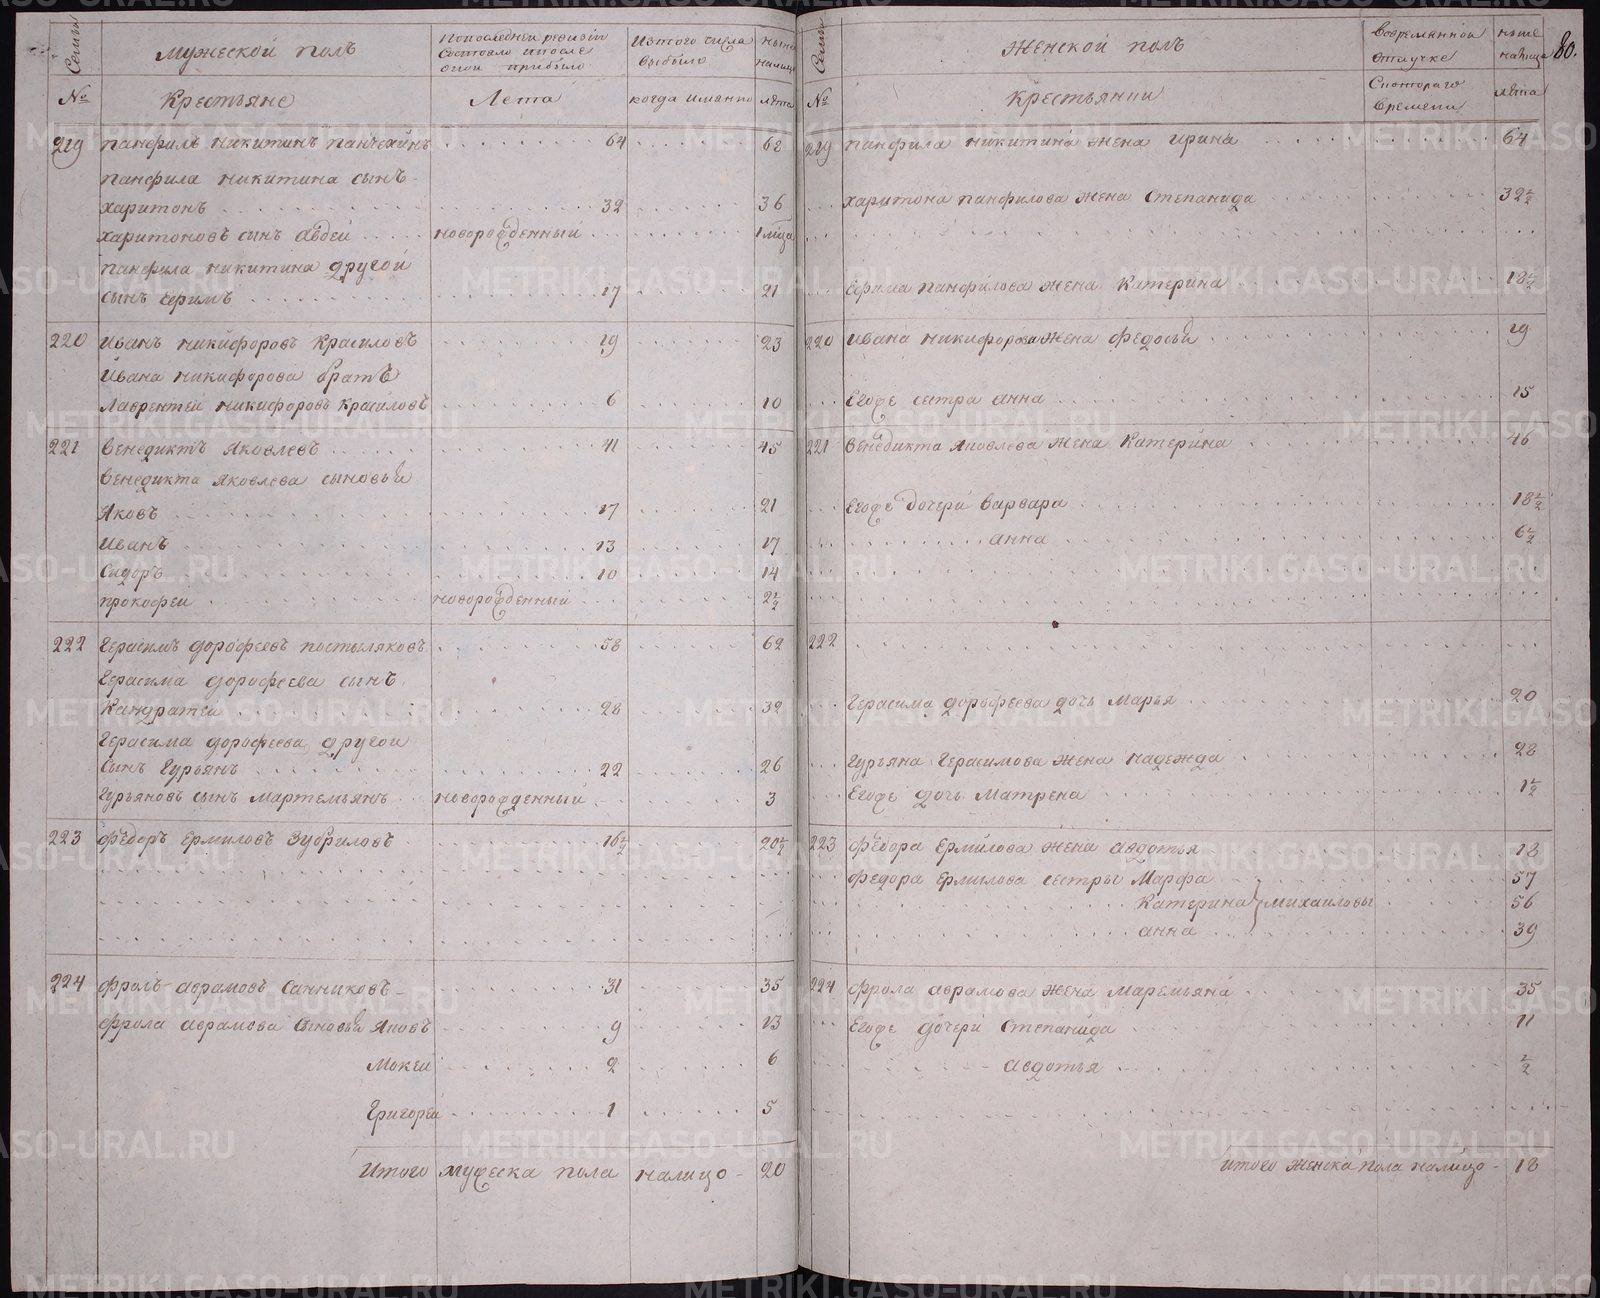 Семьи
Мужеской полъ
Попоследней ревизии
Состояло ипосле
оной прибыло
Изтого числа
выбыло
ныне
налицо
№
Крестьяне
Лета
когда именно
лета
219 панфилъ никитинъ 64 68
панфила никитина сынъ
харитонъ 32 36
харитоновъ сынъ авдеи новорожденныи 1 м͠ца
панфила никитина другой
сынъ ефимъ 17 21
220 Иванъ никифоровъ красиловъ 19 23
Ивана никифорова братъ
Лаврентеи никифоровъ красиловъ 6 10
221 Венедиктъ Яковлевъ 41 45
Венедикта Яковлева сыновьи
Яковъ 17 21
Иванъ 13 17
Сидоръ 10 14
прокофеи новорожденныи 2½
222 Герасимъ дорофеевъ постыляковъ 58 62
Герасима дорофеева сынъ
Кандратеи 28 32
Герасима дорофеева другой
Сынъ Гурьянъ 22 26
Гурьяновъ сынъ мартемьянъ новорожденныи 3
223 Федоръ Ермиловъ Зубриловъ 16½ 20½
224 Фролъ аврамовъ Санниковъ 31 35
Фрола аврамова Сыновьи Яковъ 9 13
Мокеи 2 6
Григореи 1 5
Итого мужеска пола налицо - 20
Семьи
Женской полъ
Вовременной
отлучке
ныне
налицо
80.
№
Крестьянки
Скотораго
времени
лета
219 панфила никитина жена ирина 64
харитона панфилова жена Степанида 32½
Ефима панфилова жена Катерина 18½
220 Ивана никифорова жена федосьи 19
Егоже сестра анна 15
221 Венедикта Яковлева жена Катерина 46
Егоже дочери варвара 18½
анна 6½
222
Герасима дорофеева дочь марья 20
Гурьяна Герасимова жена надежда 28
Егоже дочь Матрена 1½
223 Федора Ермилова жена авдотья 18
Федора Ермилова сестры Марфа 57
Катерина } михаиловы 56
анна 39
224 Фрола аврамова жена маремьяна 35
Егоже дочери Степанида 11
авдотья ½
итого женска пола налицо - 18
METRIKI.GASO-URAL.RU